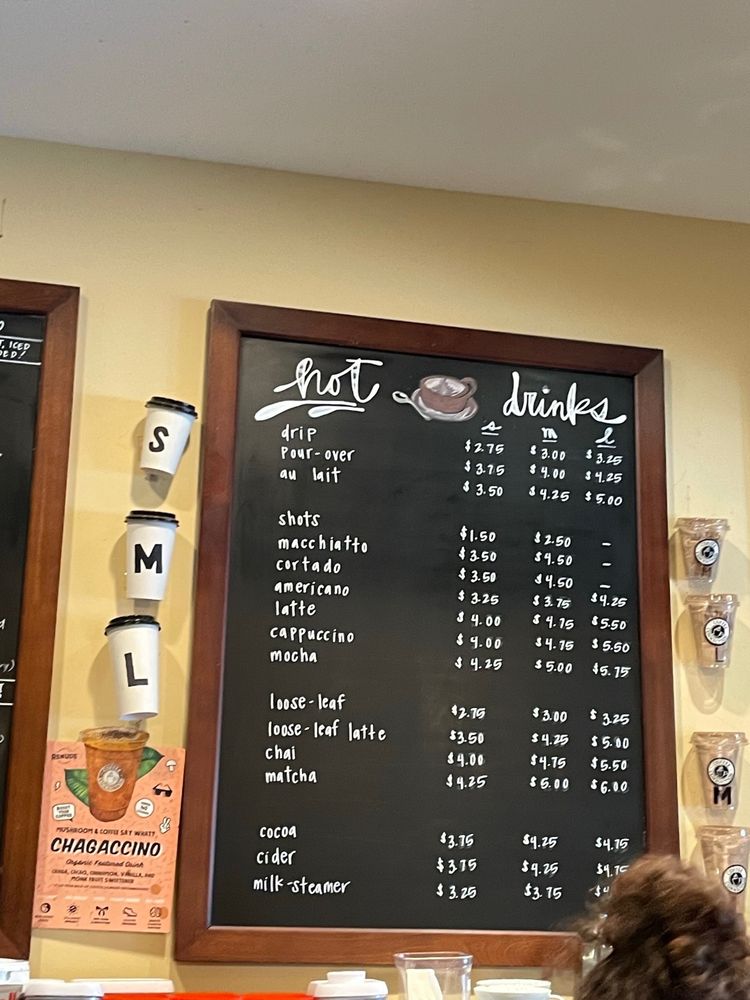 T, ICED
DED!
S
M
L
hot drinks
s m l
drip $2.75 $3.00 $3.25
pour-over $3.75 $4.00 $4.25
au lait $3.50 $4.25 $5.00
shots $1.50 $2.50 -
macchiatto $3.50 $4.50 -
cortado $3.50 $4.50 -
americano $3.25 $3.75 $4.25
latte $4.00 $4.75 $5.50
cappuccino $4.00 $4.75 $5.50
mocha $4.25 $5.00 $5.75
loose-leaf $2.75 $3.00 $3.25
loose-leaf latte $3.50 $4.25 $5.00
chai $4.00 $4.75 $5.50
matcha $4.25 $5.00 $6.00
cocoa $3.75 $4.25 $4.75
cider $3.75 $4.25 $4.75
milk-steamer $3.25 $3.75
RENUDE
MUSHROOM & COFFEE SAY WHAT?
CHAGACCINO
Organic Featured Drink
CHAGA, CACAO, CINNAMON, VANILLA, AND
MONK FRUIT SWEETENER
L
M